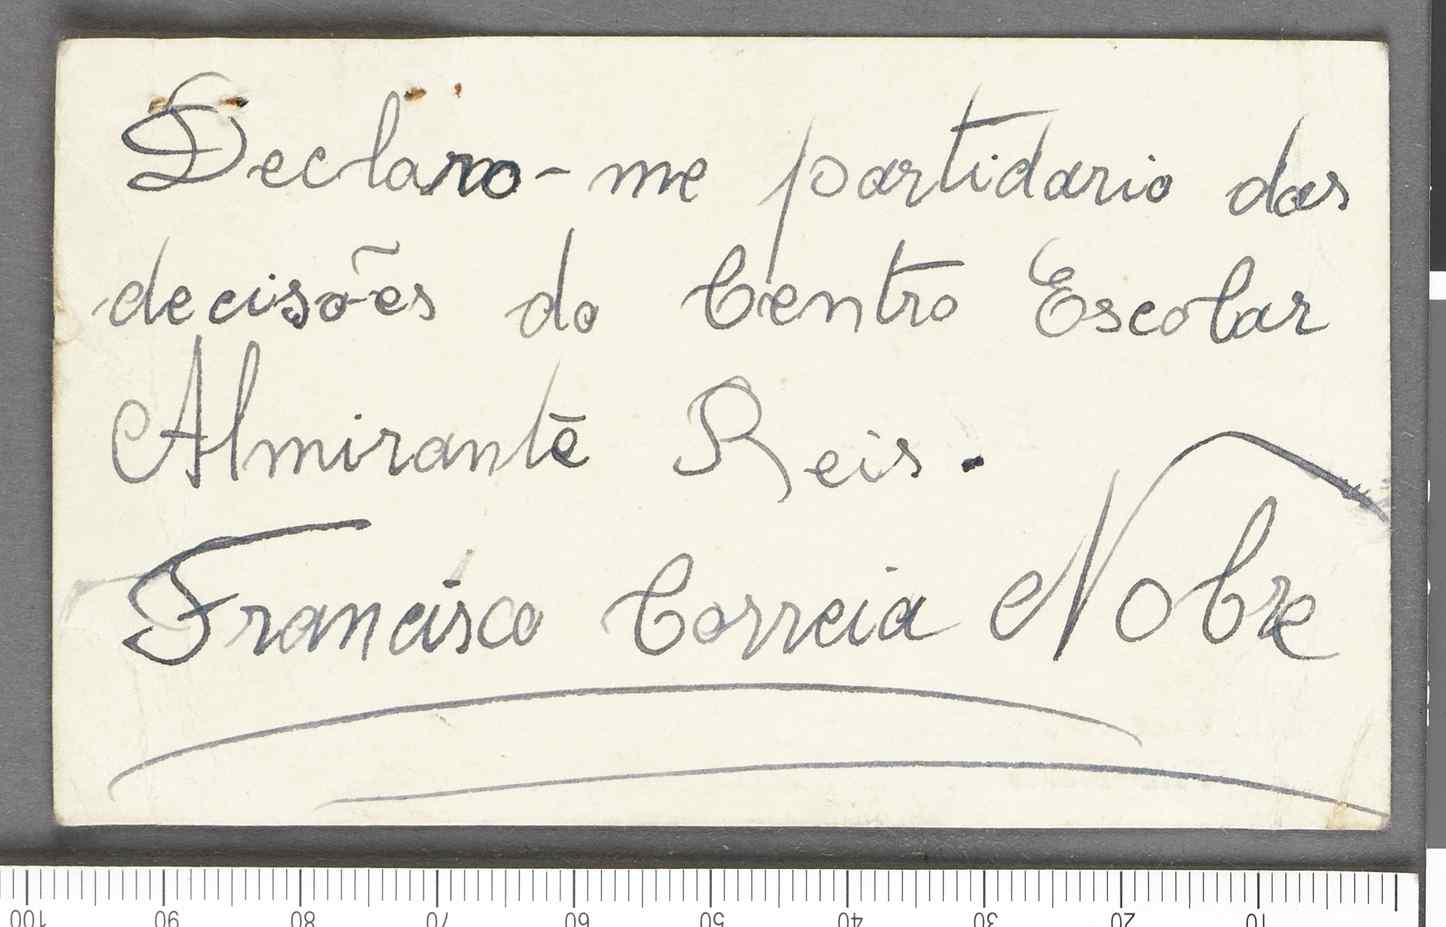 Declaro-me partidario das
decisões do Centro Escolar
Almirante Reis.
Francisco Correia Nobre
100 90 80 70 60 50 40 30 20 10